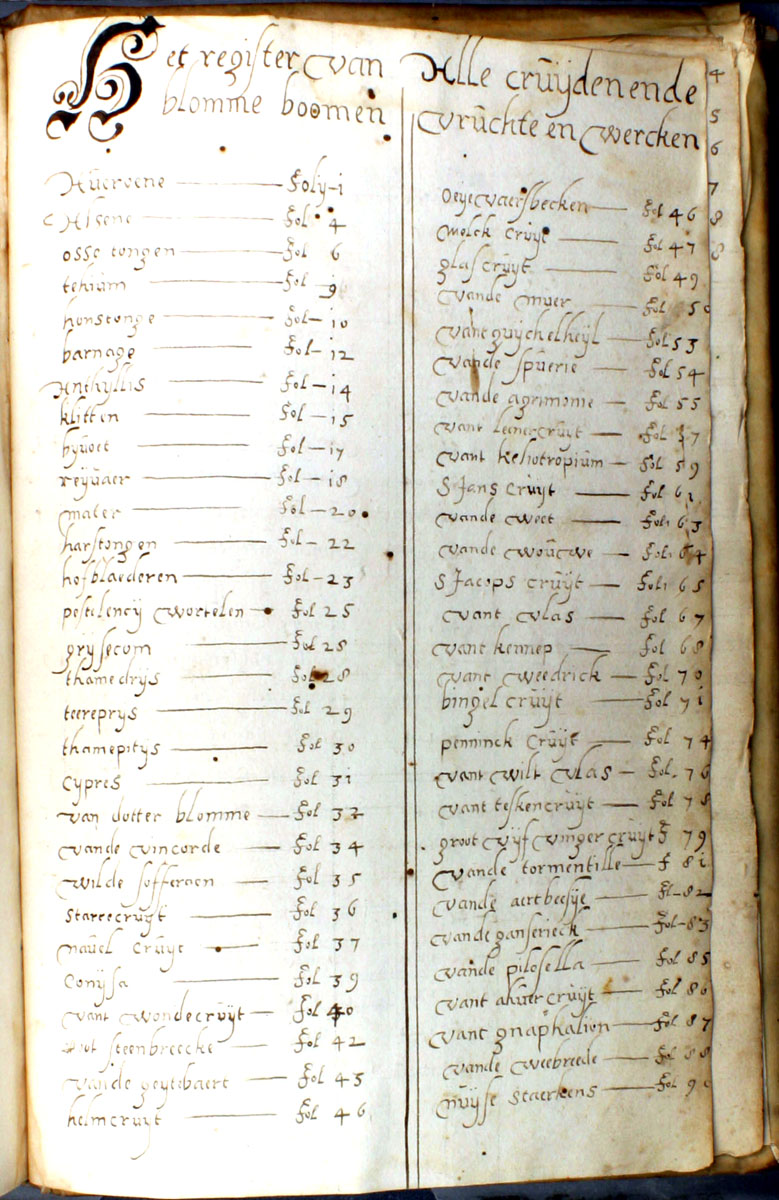 Het register van Alle crŭijden ende
blomme boomen vrŭchte en wercken
Averoene Foly-i
Alsene Fol 4
osse tongen Fol 6
tekiŭm Fol 9
honstonge Fol-io
barnage Fol-i2
Anthyllis Fol-i4
klitten Fol-i5
byvoet Fol-i7
reyŭaer Fol-i8
mater Fol-20
harstongen Fol-22
hofblaederen Fol-23
pestelency wortelen Fol 25
grysecom Fol 28
thamedrys Fol 28
teereprys Fol 29
thamepitys Fol 30
Cypres Fol 3i
van dotter blomme Fol 32
vande vincorde Fol 34
wilde sofferaen Fol 35
stareecruyt Fol 36
navel Cruyt Fol 37
Conysa Fol 39
vant wondecrŭyt Fol 40
steenbreecke Fol 42
vande geytebaert Fol 43
helmcruyt Fol 46
oeyevaersbecken Fol 46
molck cruyt Fol 47
glascruyt Fol 49
vande muer Fol 50
vant guychelheyl Fol 53
vande spŭerie Fol 54
vande agrimonie Fol 55
vant leenercruyt Fol 57
vant heliotropiŭm Fol 59
S Jans Cruyt Fol 6i
vande weet Fol 63
vande woŭwe Fol 64
S Jacops crŭyt Fol 65
vant vlas Fol 67
vant kennep Fol 68
vant weedrick Fol 70
bingel crŭyt Fol 7i
penninck Cruyt Fol 74
vant wilt vlas Fol 76
vant teskencrŭyt Fol 78
groot vyf vinger crŭyt F 79
vande tormentille F 8i
vande aertbesye Fl-82
vande ganserieck Fol-83
vande pilosella Fol 85
vant cruyt Fol 86
vant gnaphalion Fol 87
vande weebreede Fol 88
Fol 90
4
5
6
7
8
8